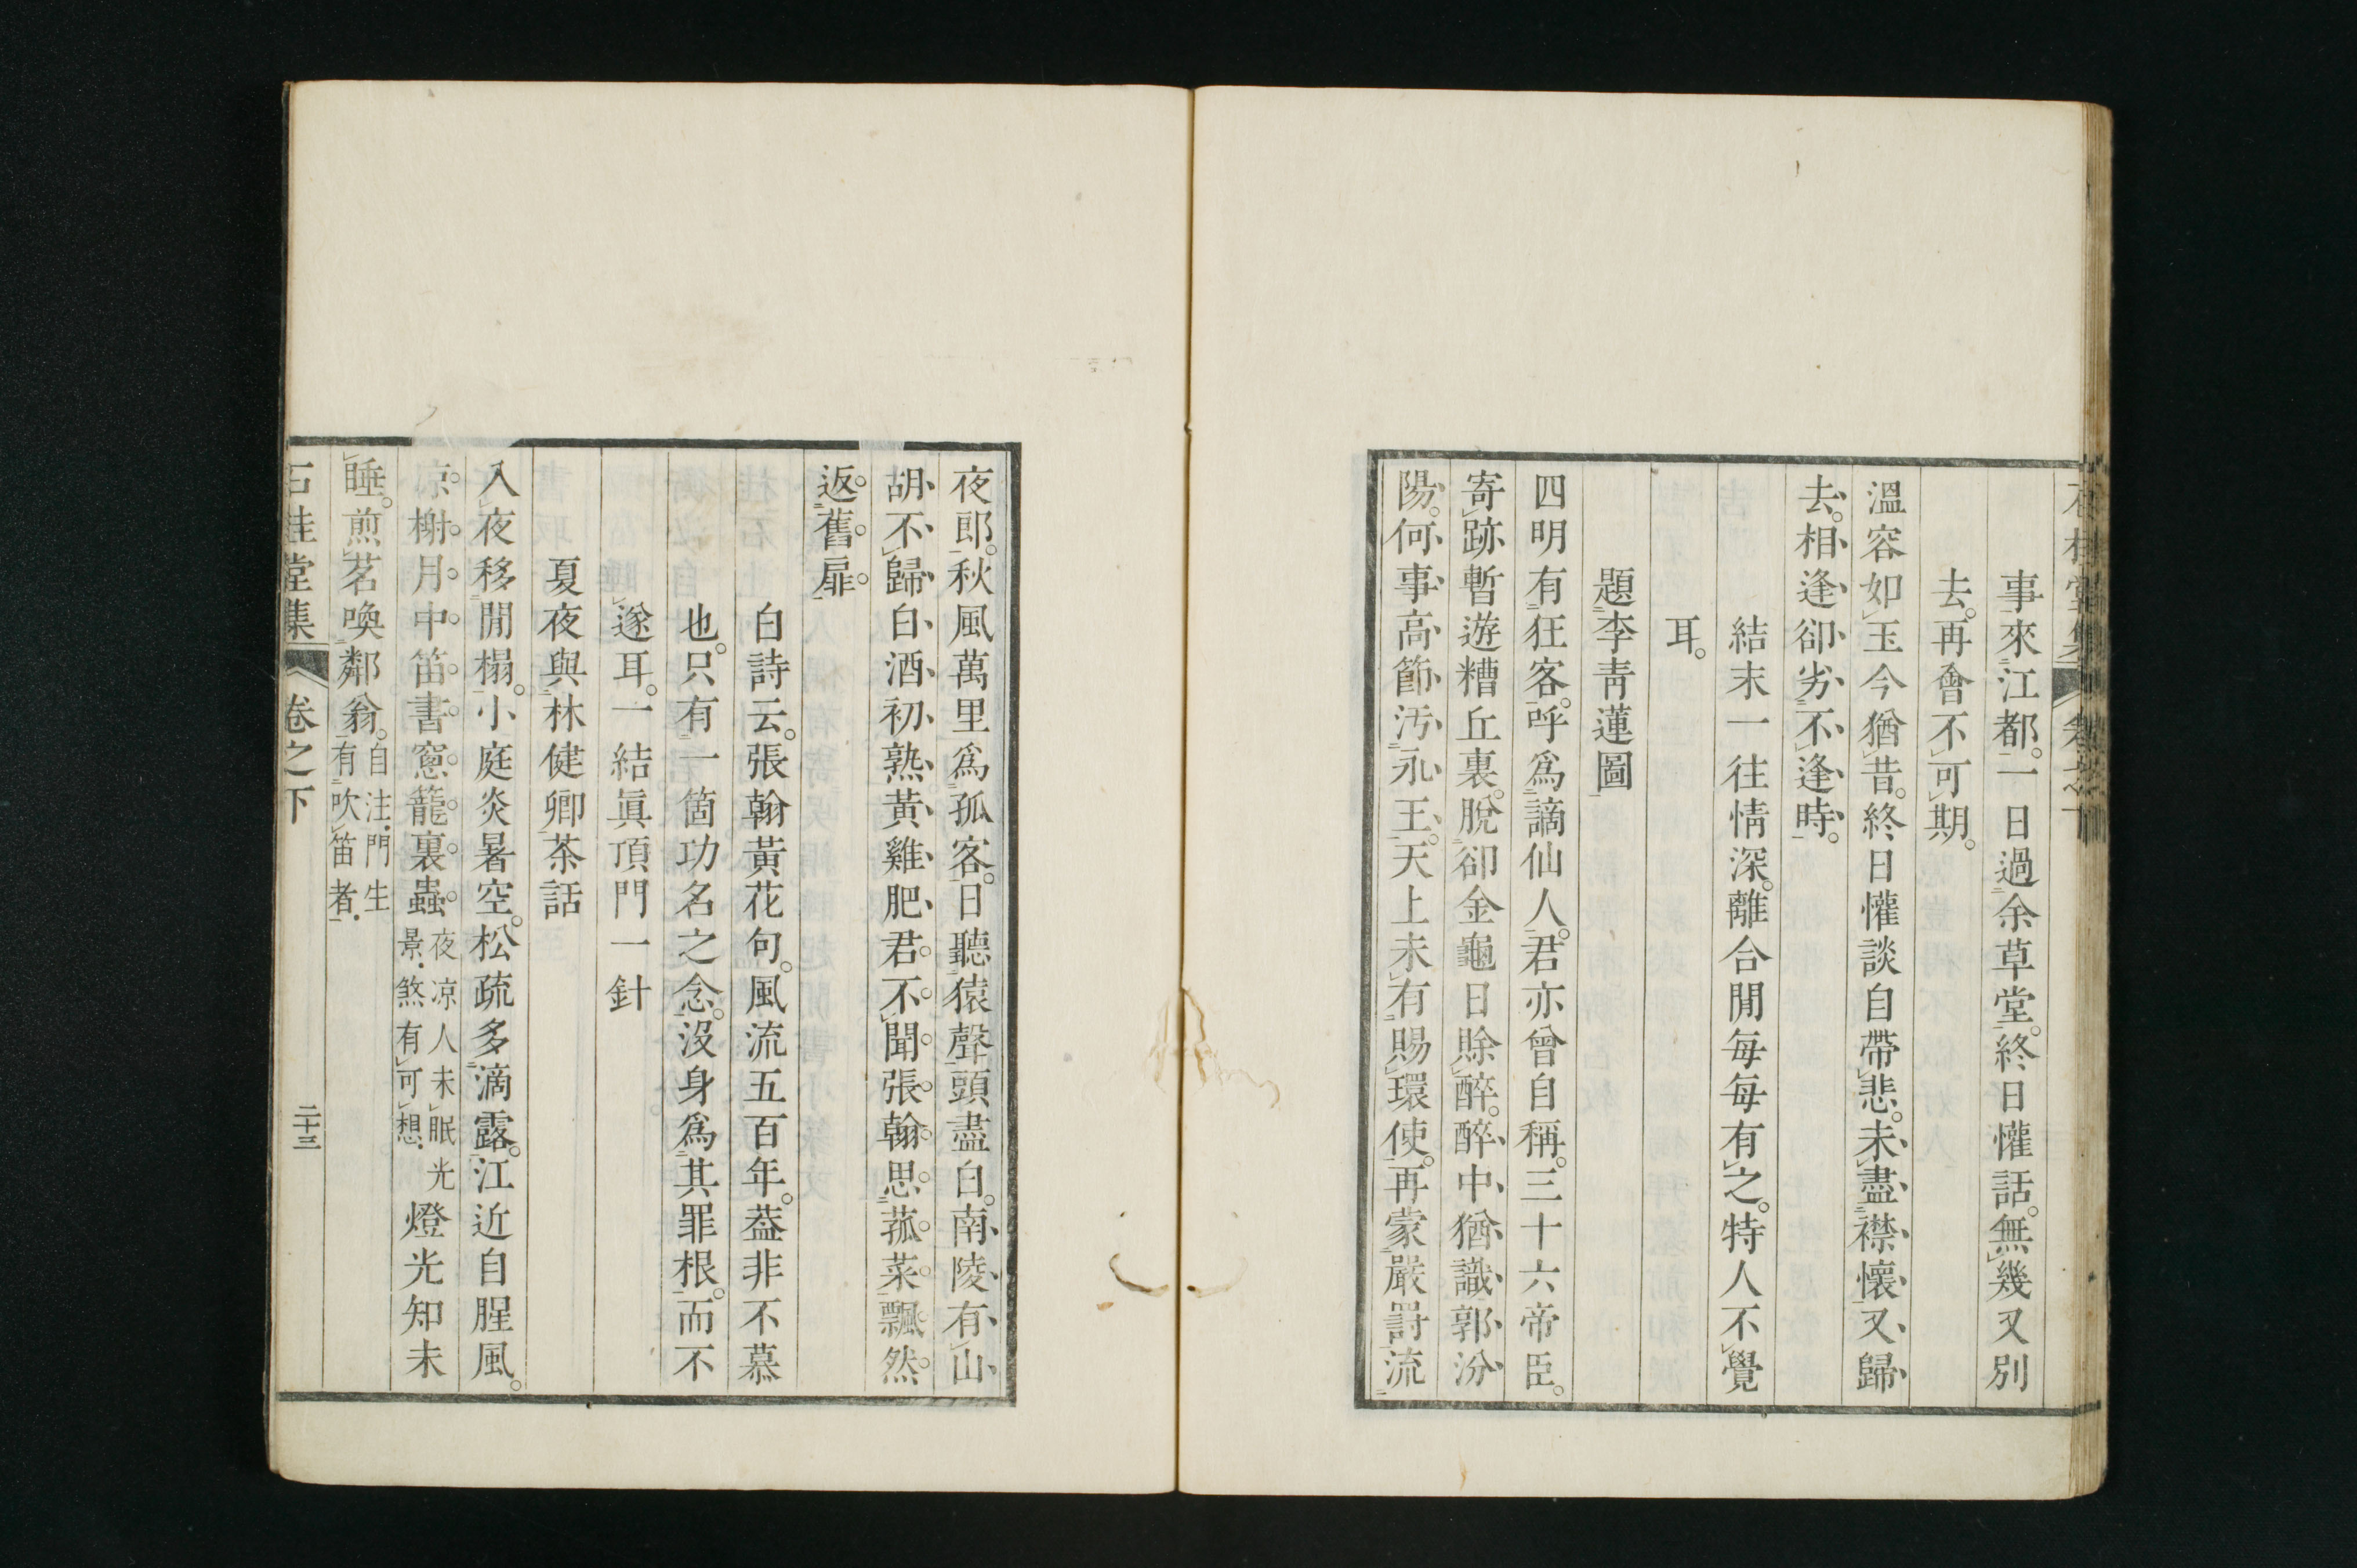 事來江都。一日過余草堂。終日懽話。無幾又別
去。再會不可期。
溫容如玉今猶昔。終日懽談自帶悲。未盡襟懷又歸
去。相逢卻劣不逢時。
結末一往情深。離合閒每每有之。特人不覺
耳。
題李青蓮圖
四明有狂客。呼爲謫仙人。君亦曾自稱。三十六帝臣。
寄跡暫遊糟丘裏。脫卻金龜日賒醉。醉中猶識郭汾
陽。何事高節汚永王。天上未有賜環使。再蒙嚴罸流
夜郎。秋風萬里爲孤客。日聽猿聲頭盡白。南陵有山
胡不歸白酒初熟黃雞肥君不聞張翰思菰菜飄然
返舊扉。
白詩云。張翰黃花句。風流五百年。葢非不慕
也。只有一箇功名之念。沒身爲其罪根。而不
遂耳。一結眞頂門一針
夏夜與林健卿茶話
入夜移閒榻。小庭炎暑空。松疏多滴露。江近自腥風。
凉榭月中笛。書窻籠裏蟲。夜凉人未眠光景.煞有可想.燈光知未
睡。煎茗喚鄰翁。自注.門生有吹笛者.
石桂堂集 卷之下 二十三